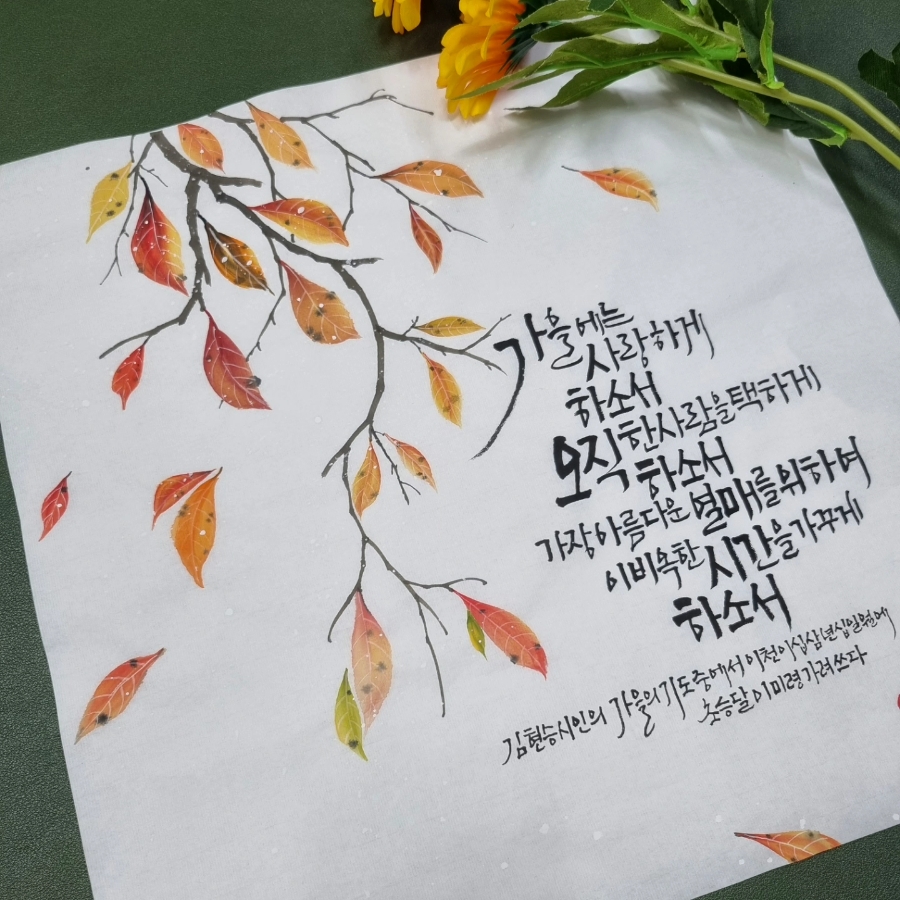 가을에는
사랑하게
하소서
오직한사람을택하게
하소서
가장아름다운열매를위하여
이비옥한시간을가꾸게
하소서
김현승시인의 가을의기도중에서이천이십삼년십일월에
초승달이미령가려쓰다